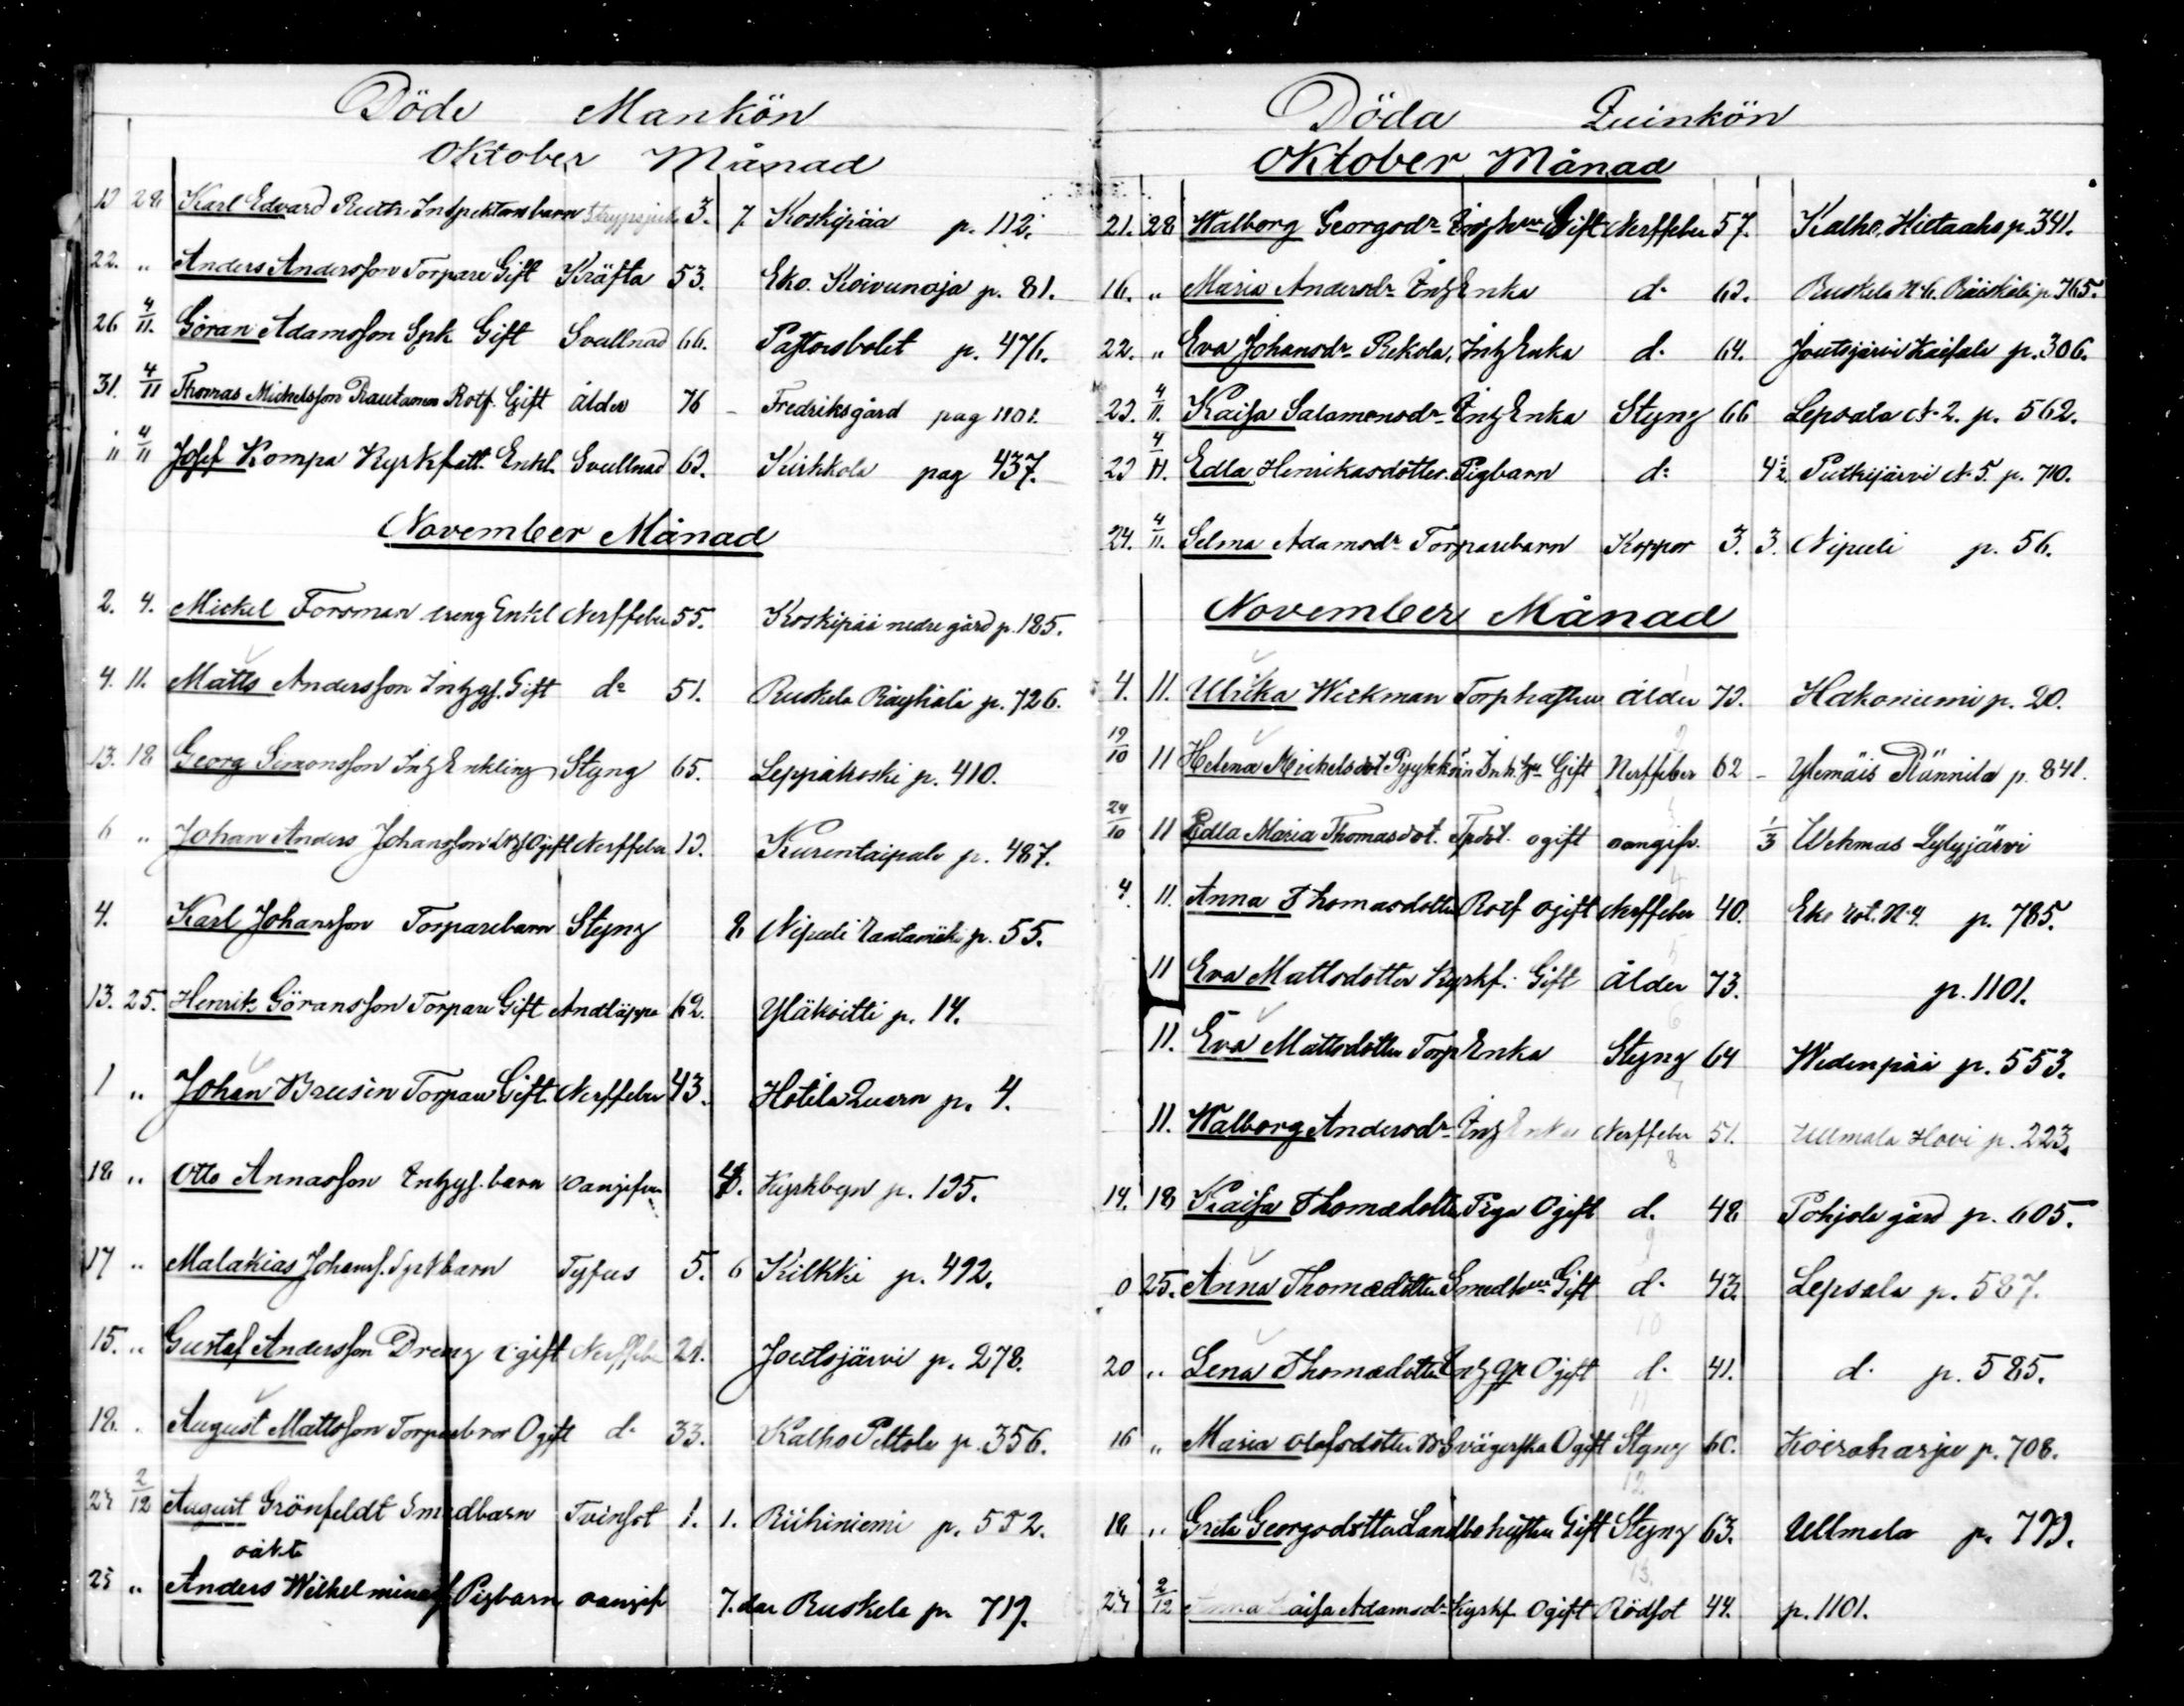 Döde Mankön
Oktober Månad
12 28 Karl Edvard Ruth. Inspektorsbarn Strypsjuka 3. 7. Koskipää p. 112.
22. " Anders Andersson Torpare Gift Kräfta 53. Eko. Koivunoja p. 81.
26 4/11. Göran Adamsson Spk Gift Svullnad 66. Pastorsbolet p. 476.
31. 4/11 Thomas Mickelsson Rautanen Rotf. Gift Ålder 76 - Fredriksgård pag 1101.
" 4/11 Josef Kompa Kyrkfatt. Enkl. Svullnad 62. Kirkkola pag 437.
November Månad
2. 4. Mickel Forsman dreng Enkl Nerffeber 55. Koskipää nedre gård p. 185.
4. 11. Matts Andersson Inhys. Gift do 51. Ruskela Räyhälä p. 726.
13. 18 Georg Simonsson Inh Enkling Styng 65. Leppäkoski p. 410.
6 " Johan Anders Johansson Ogift Nerffeber 12. Kurentaipale p. 487.
4. Karl Johansson Torparebarn Styng 8 Nipuli Rantamäki p. 55.
13. 25. Henrik Göransson Torpare Gift Andtäppa 62. Yläkoitti p. 14.
1 " Johan Brusin Torpare Gift. Nerffeber 43. Hotila Quarn p. 4.
18 " Otto Annasson Inhys. barn oangifven Kyrkbyn p. 195.
17 " Malakias Johanss. Spkbarn Tyfus 5. 6 Kilkki p. 492.
15. " Gustaf Andersson Dreng ogift Nerffeber 21. Joutsjärvi p. 278.
18. " August Mattsson Torparebror Ogift d. 33. Kalho Peltola p. 356.
2/12 August Grönfeldt Smedbarn Tvinsot 1. 1. Riihiniemi p. 552.
oäkta
25 " Anders Wilhelminas Pigbarn oangif 7. dar Ruskela p. 719.
Döda Quinkön
Oktober Månad
21. 28 Walborg Georgsdr Gift Nerffeber 57. Kalho, Hietaaho p. 341.
16. " Maria Andersdr Inh Enka d. 62. Ruskela N 6. Räiskälä p. 765.
22. " Eva Johansdr Rekola, Inh Enka d. 64. Joutsjärvi Kaifala p. 306.
23. 4/11. Kaisa Salamonsdr Inh Enka Styng 66 Lepsala N. 2. p. 562.
23 4/11. Edla Henrikasdotter. Pigbarn do 4 1/2. Putkijärvi N. 5. p. 710.
24. 4/11. Selma Adamsdr Torparebarn Koppor 3. 3. Nipuli p. 56.
November Månad
4. 11. Ulrika Wickman Torphustru Ålder 72. Hakoniemi p. 20.
19/10 11 Helena Mickelsdot Pyykköin Inh. hu Gift Nerffeber 62 - Ylemäis Rünnilä p. 841.
24/10 11 Edla Maria Thomasdot. Tpdot. ogift oangifv. 1/3 Wehmas Lylyjärvi
4. 11. Anna Thomasdotter Rotf ogift Nerffeber 40. Eko rot. N 4. p. 785.
11 Eva Mattsdotter Kyrkf. Gift Ålder 73. p. 1101.
11. Eva Mattsdotter Torp Enka Styng 64 Widenpää p. 553.
11. Walborg Andersdr Inh Enka Nerffeber 51. Ullmala Hovi p. 223.
14. 18 Kaisa Thomædotter Piga Ogift d. 48 Pohjola gård p. 605.
0 25. Anna Thomædotter Smedhu Gift d. 43. Lepsala p. 587.
20 " Lena Thomædotter Inhys Ogift d. 41. d. p. 585.
16 " Maria Olofsdotter Svägerska Ogift Styng 60. Koiraharju p. 708.
18 " Greta Georgsdotter Landbohustru Gift Styng 63. Ullmala p. 799.
2/12 Anna Kaisa Adamsdr Kyrkf Ogift Rödsot 44. p. 1101.